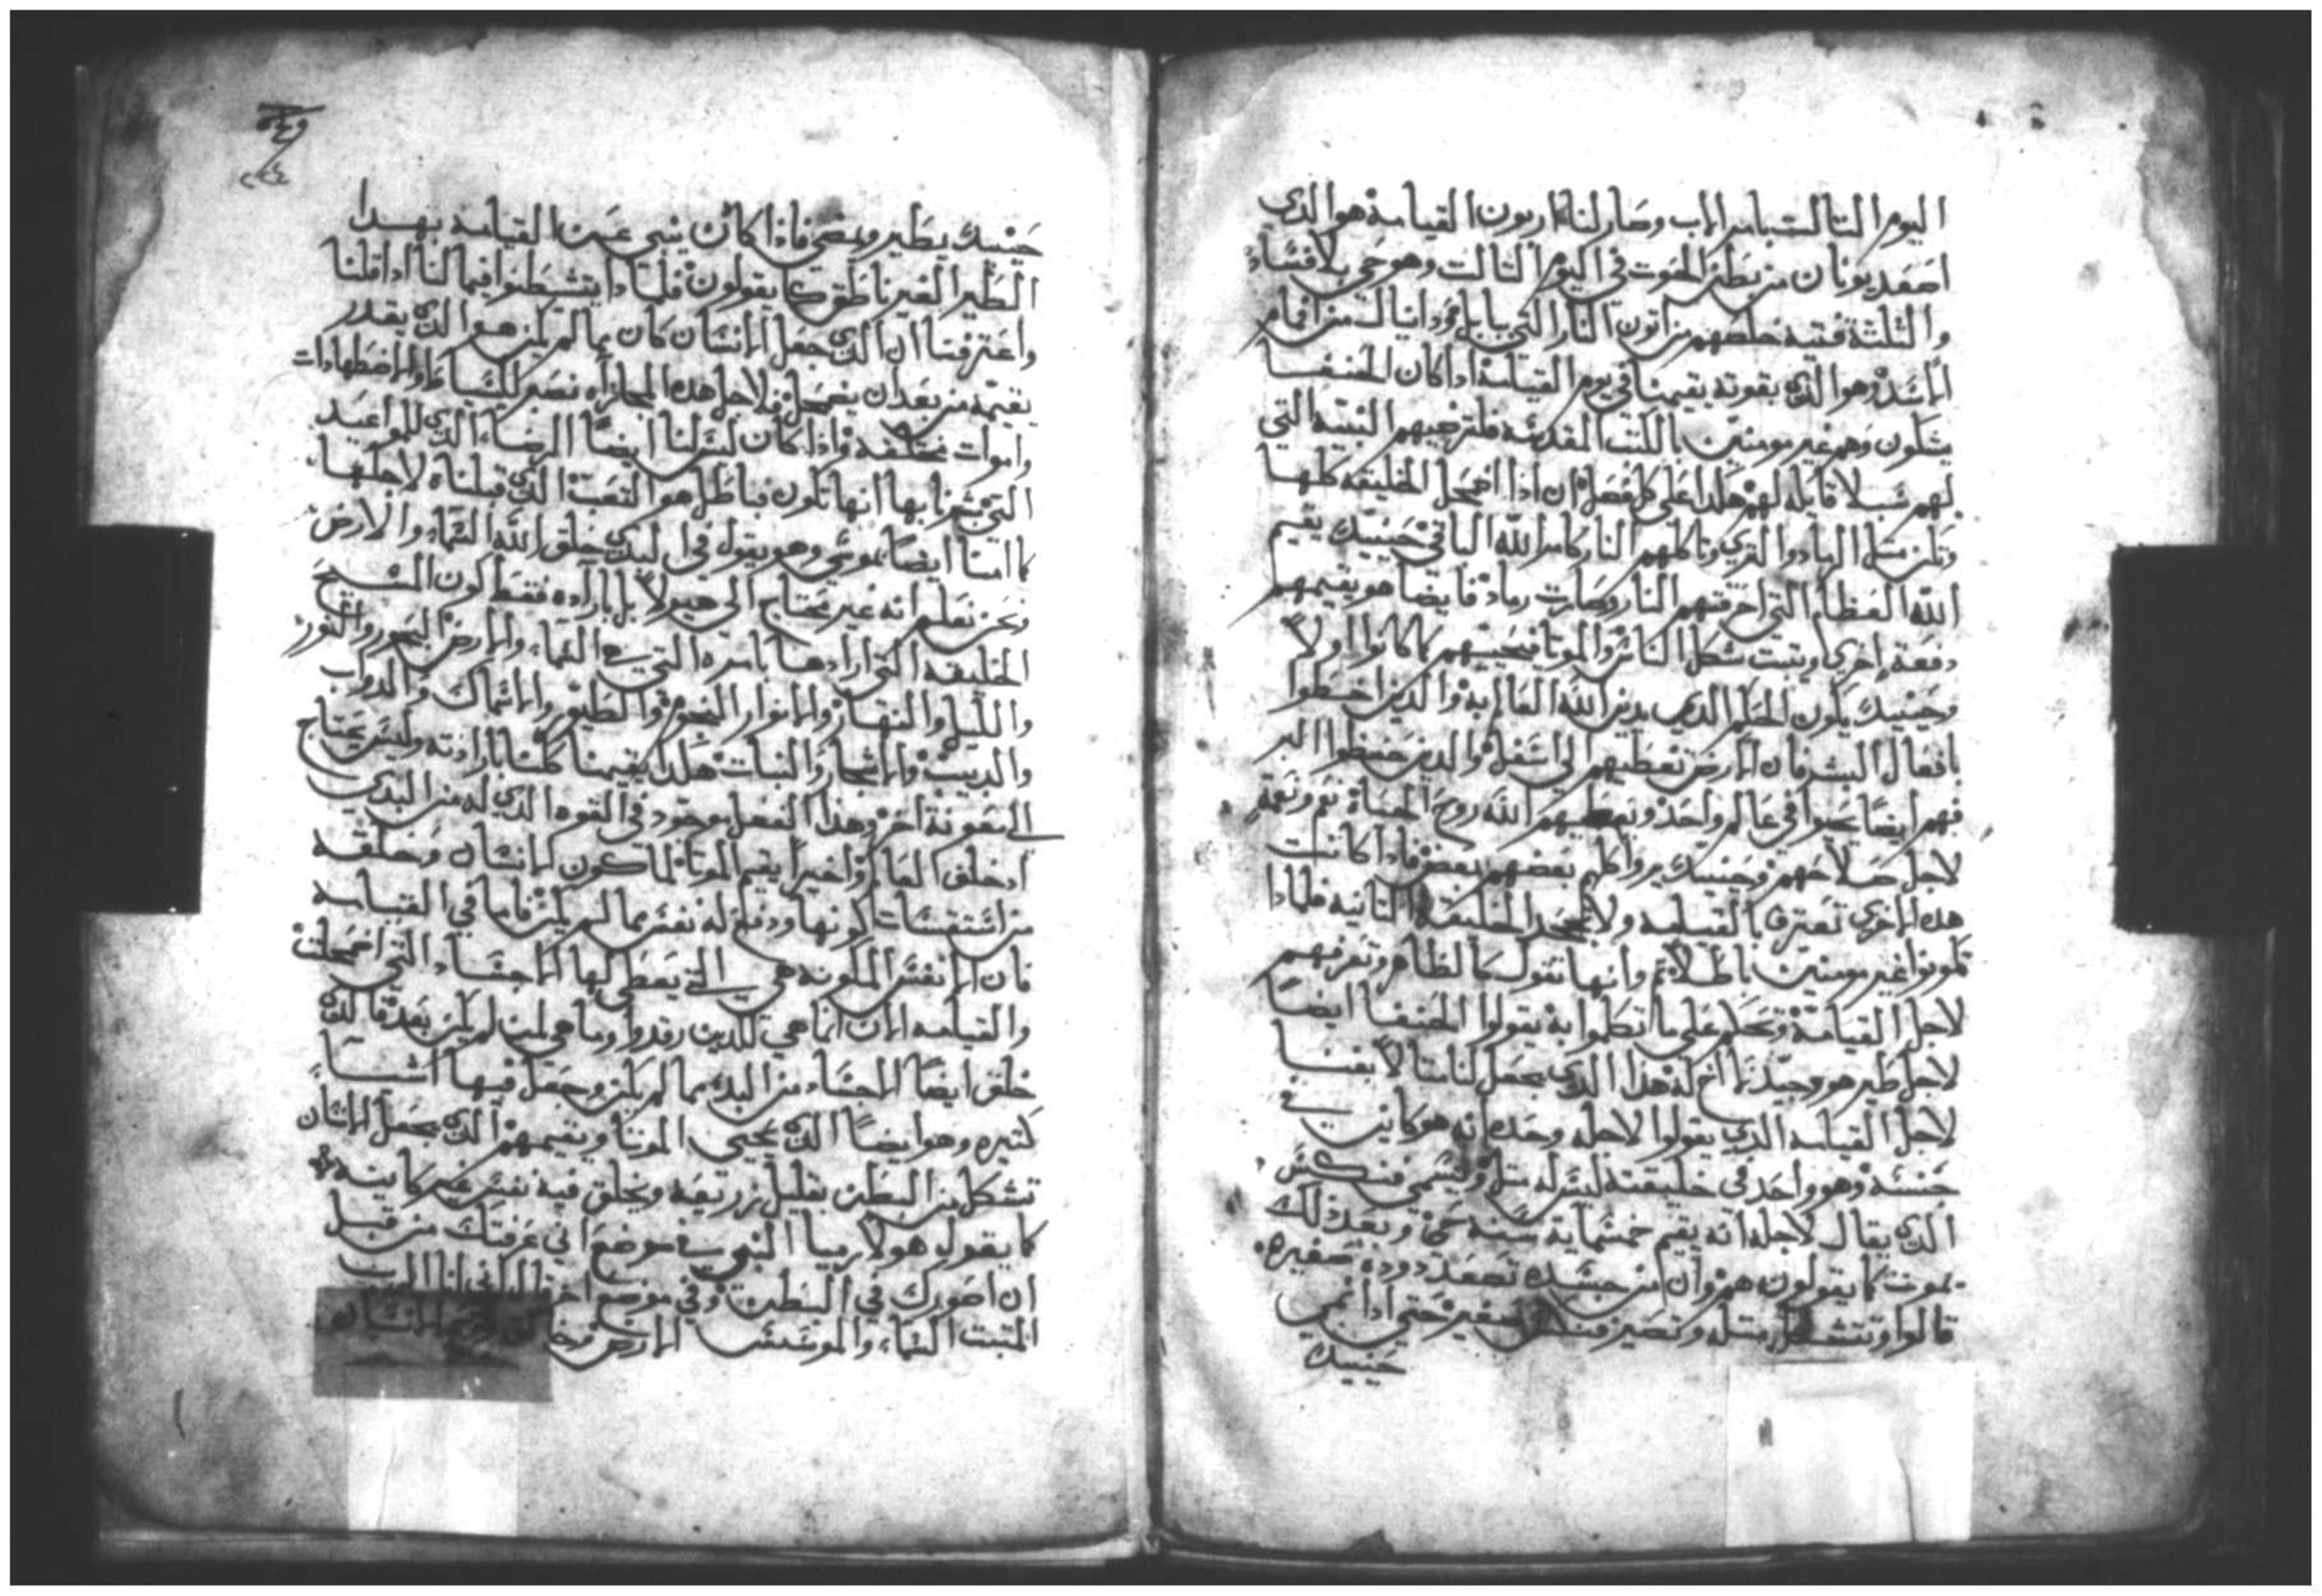 اليوم التالت بامر الاب وصار لنا اربون القيامة هو الذي
اصعد يونان من بطن الحوت في اليوم التالت وهو حي بلا فساد
والتلتة فتية خلصهم من اتون النار التي ببابل ودانيال من افمام
الاسد وهو الذي بقوته يقيمنا في يوم القيامة اذا كان الحنفا
يشكون وهم غير مومنين بالكتب المقدسة فلترضيهم النبية التي
لهم سبلا قايلة لهم هكذا على كل فصل ان اذا اضمحل الخليقة كلها
وتكن متل الرماد والقرى وتاكلهم النار كامر الله الباقي حينيك يقيم
الله العظام التي احرقتهم النار وصارت رماد فايضا هو يقيمهم
دفعة اخرى ويتبت شكل الناس والموتا فيحييهم كما كانوا اولا
وحينيك يكون الحكم الدي يدين الله العالم به والدين اخطوا
بافعال البشر فان الارض تغطيهم الى اسفل والدين حفظوا البر
فهم ايضا يحيوا في عالم واحد ويعطيهم الله روح الحياة نعم ونعمة
لاجل صلاحهم وحينيك يروا كلهم بعضهم بعض فاذا كانت
هده الاخرى تعترف بالقيامة ولا تجحد الخليقة التانية فلمادا
تكونوا غير مومنين باطلا
لاجل القيامة
لاجل طير هو وحيد
لاجل القيامة الدي يقولوا لاجله وحده انه هو كاين في
جنسه وهو واحد في خليقته ليس له متل ويسمى فنكس
الذي يقال لاجله انه يقيم خمسماية سنة حي وبعد ذلك
يموت كما يقولون هم وان من جسده تصعد دوده صغيره
قالوا وتتشكل متله وتصير فنكس صغير حتى اذا نمى
حينيك
حينيك يطير ويمضي فاذا كان نبي عن القيامة بهدا
الطير الغير ناطق كما يقولون فلمادا يتشططوا فيما لنا اذا قلنا
واعترفنا ان الذي جعل الانسان كان مما لم يكن هو الذي يقدر
يقيمه من بعد ان يضمحل فلاجل هده المجازاه نصبر للسياط والاضطهادات
واموات مختلفه واذا كان ليس لنا ايضا الرضاء الذي للمواعيد
التي بشرنا بها انها تكون فباطل هو التعب الذي قبلناه لاجلها
كما امنا ايضا بموسى وهو يقول في البدي خلق الله السماء والارض
ونحن نعلم انه غير محتاج الى هيولا بل بارادته فقط كون المسيح
الخليقة التي ارادها بامره التي هي السماء والارض البحور والنور
والليل والنهار والانوار النجوم والطيور والاسماك والدواب
والدبيب والاشجار والنبات هكذا يقيمنا كلنا بارادته وليس يحتاج
الى معونة اخر وهذا الفعل موجود في القوه الذي له من البدي
اد خلق العالم واخيرا يقيم الموتا لما كون الانسان وخلقه
من استقسات كونها ودفع له نفس مما لم يكن فاما في القيامة
فان الانفس المكونه هي التي يعطي لها الاجساد التي اضمحلت
والقيامه الان انما هي للدين رقدوا وما هي لمن لم يكن بعد فالذي
خلق ايضا الاجساد من البدي مما لم يكن وجعل فيها اشيا
كتيره وهو ايضا الذي يحيي الموتا ويقيمهم الذي يجعل الانسان
تشكل من البطن بقليل زريعه ويخلق فيه نفس غير كاينه
كما يقول هو لارميا النبي في موضع اني عرفتك من قبل
ان اصورك في البطن وفي موضع اخر قال اني انا الرب
المتبت السماء والموسس الارض وخالق روح الانسان